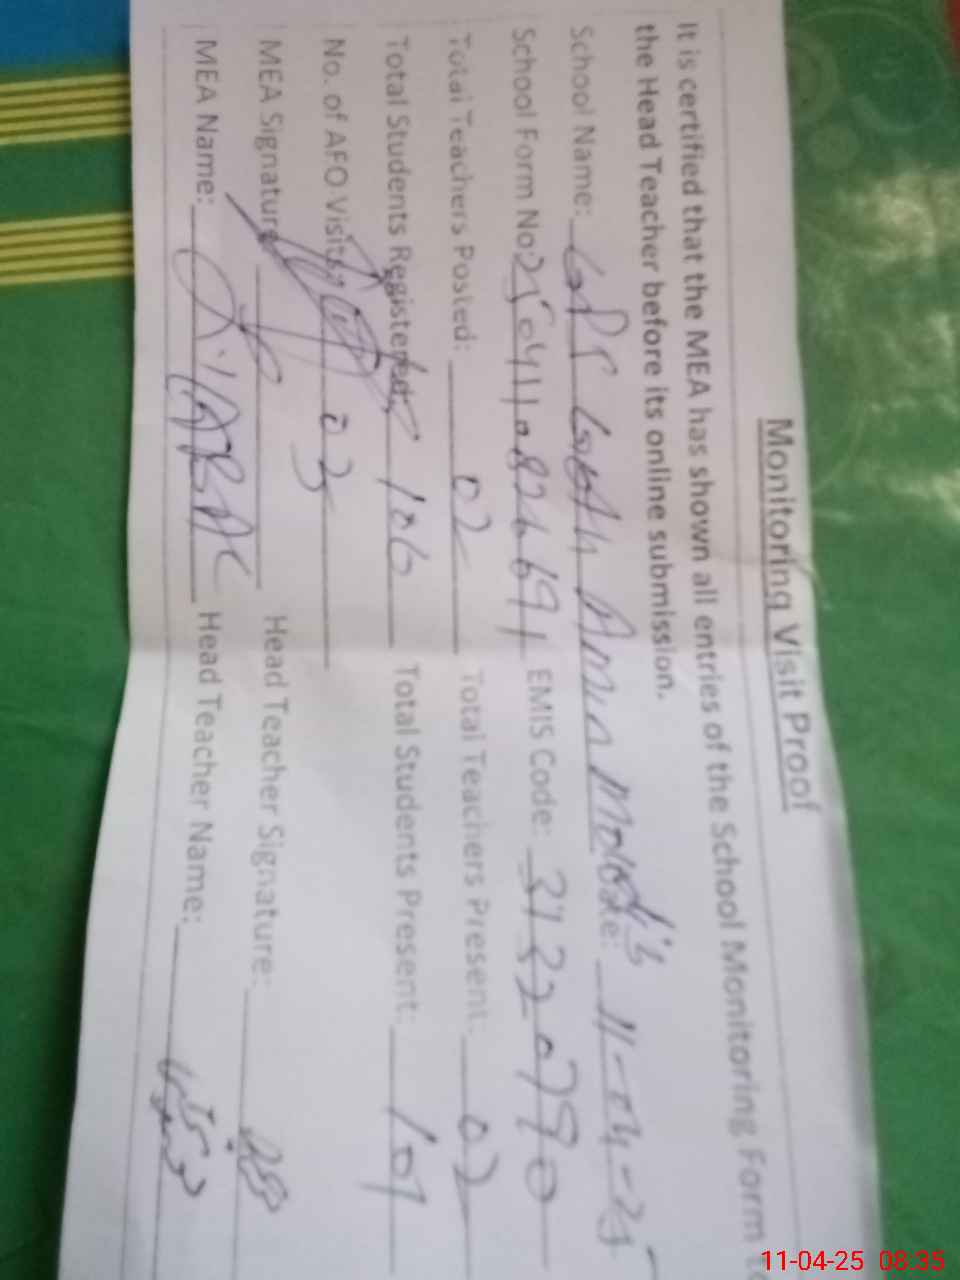 Monitoring Visit Proof
It is certified that the MEA has shown all entries of the School Monitoring Form t
the Head Teacher before its online submission.
School Name: GPS Goth Amin Date: 11-04-25
School Form No: EMIS Code: 31220790
Total Teachers Posted: 02 Total Teachers Present: 02
Total Students Registered: 106 Total Students Present:
No. of AFO Visits: 03
MEA Signature Head Teacher Signature:
MEA Name: Head Teacher Name:
11-04-25 08:35